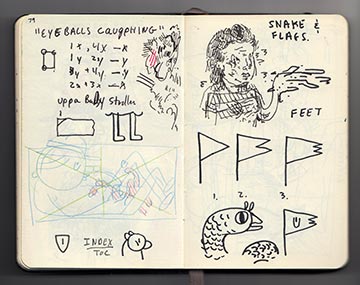 79
"EYEBALLS CAUGPHING"
1x, 4x
1y 2y — y
3y + 4y — y
2x + 3x — x
uppa Baby Stroller
1
INDEX
TOC
SNAKE &
FLAGS.
FEET
1. 2. 3.